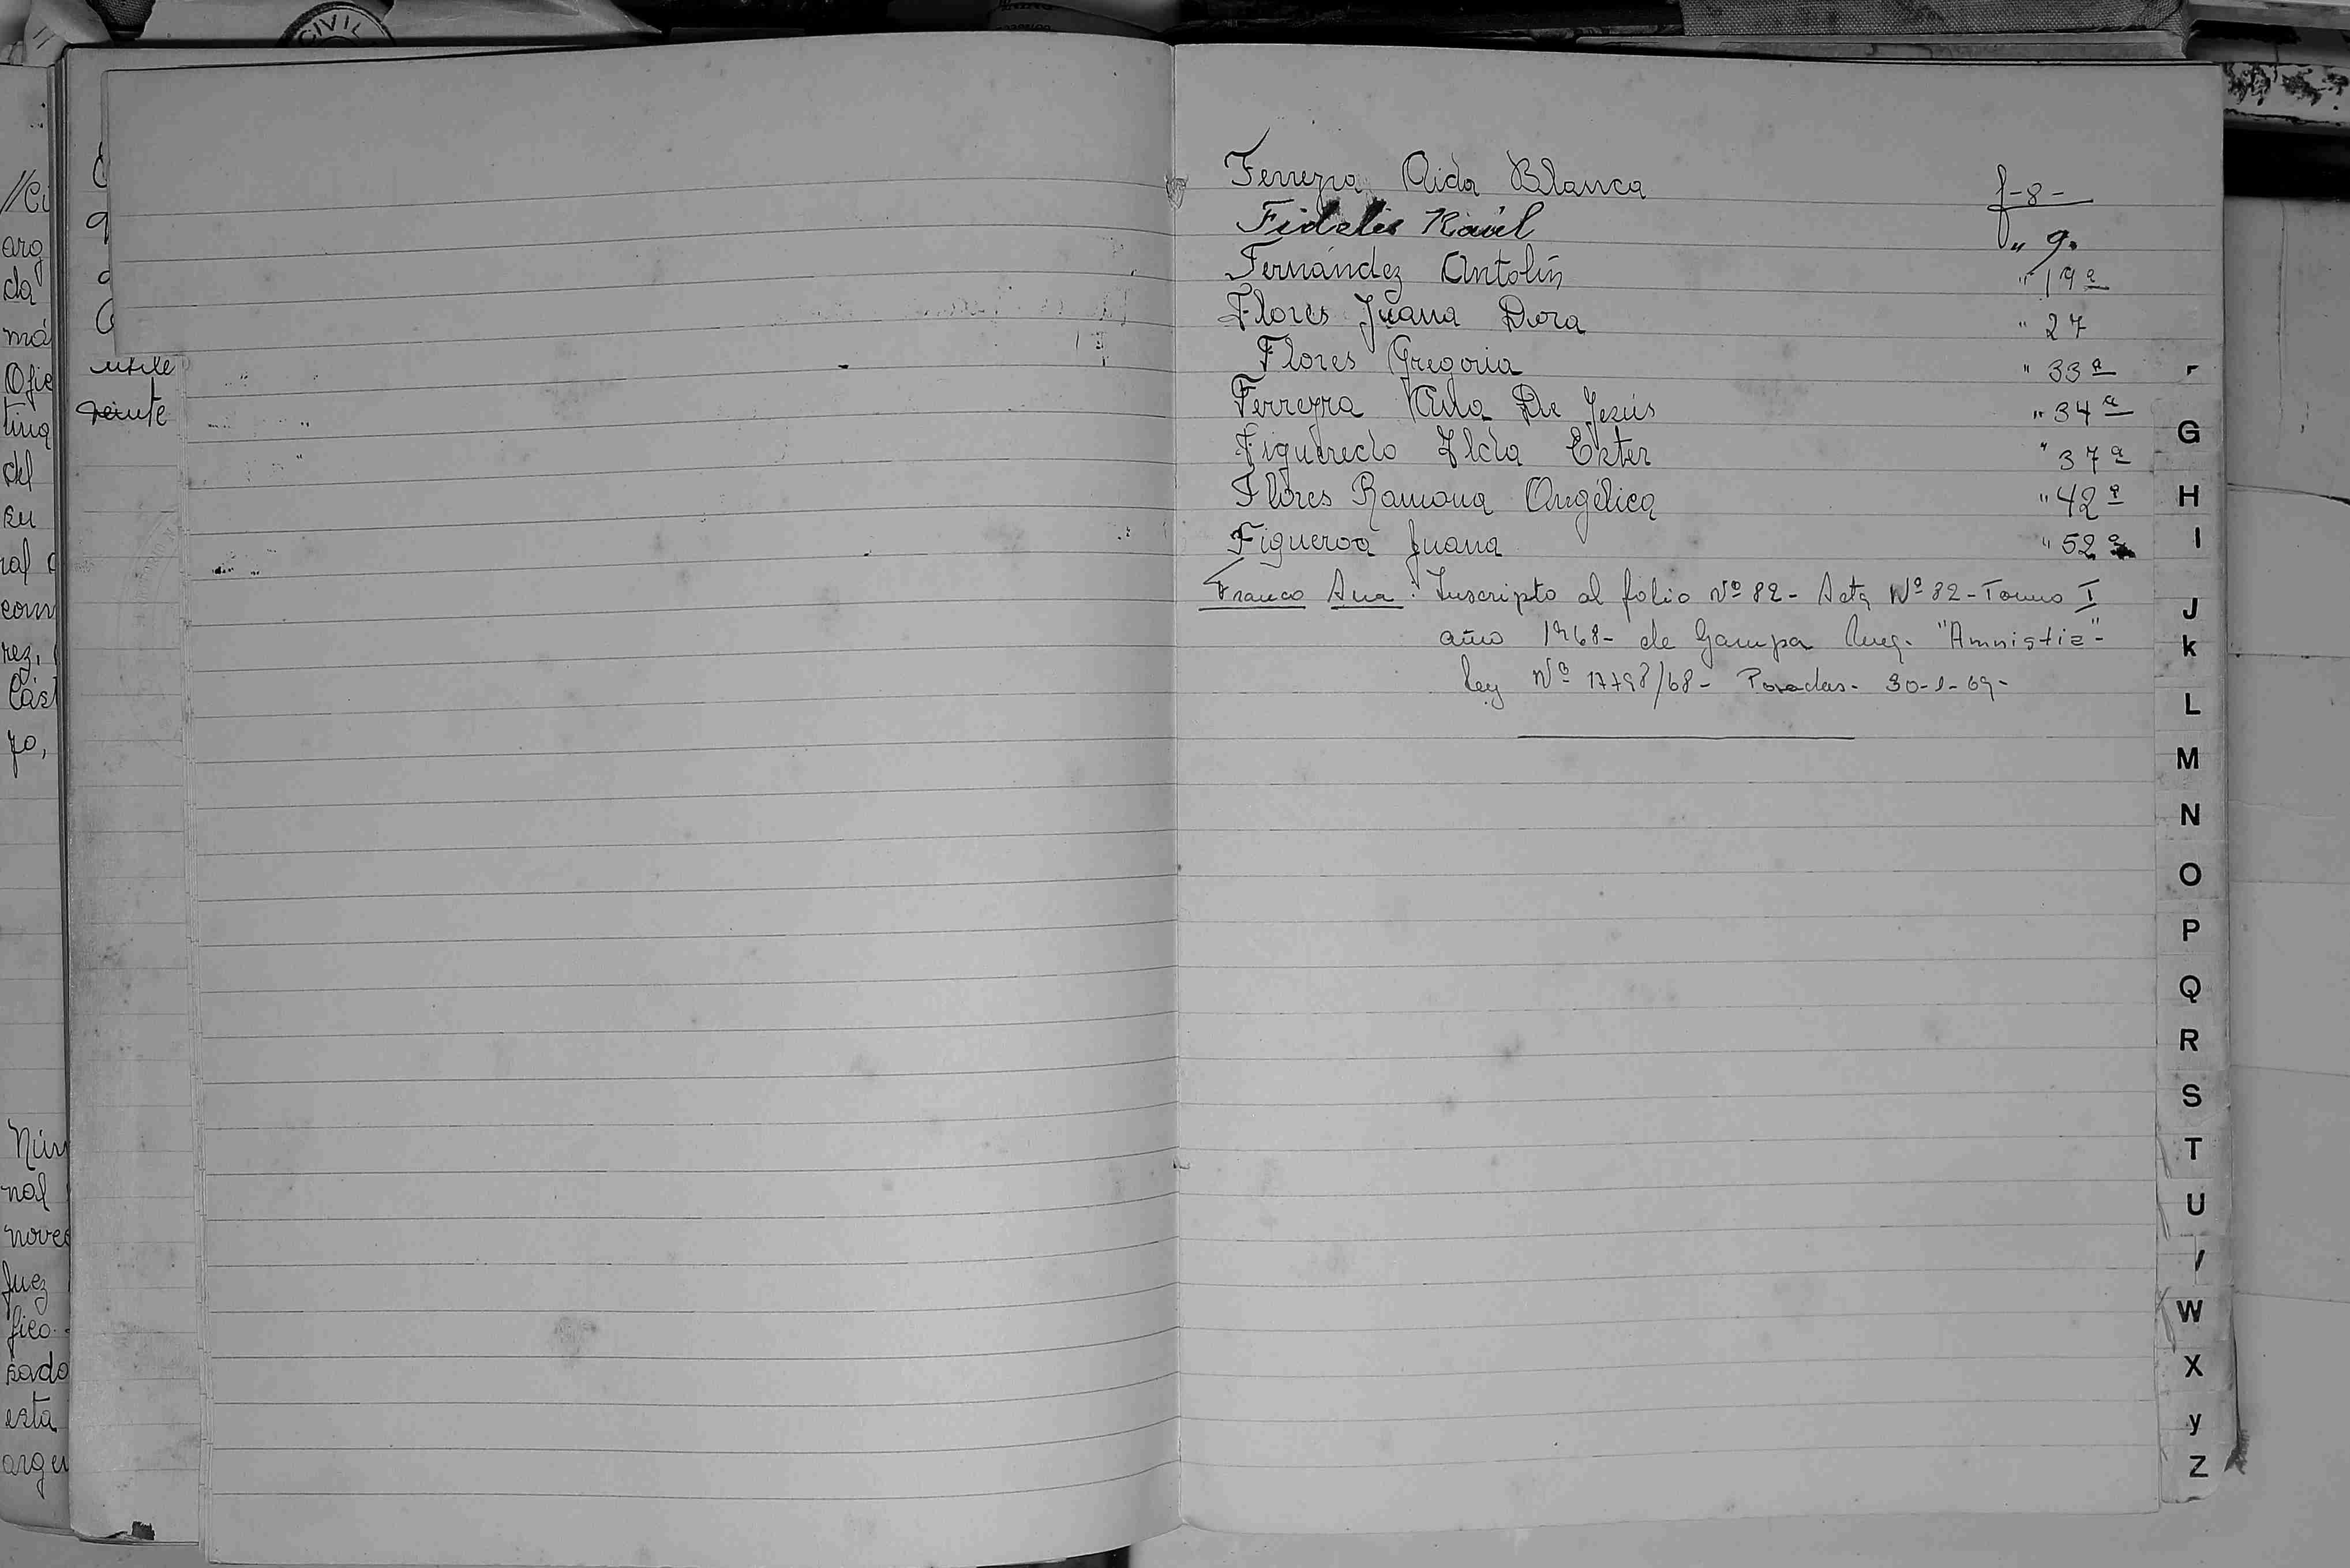 CIVIL
//Ci
arg
da
má
Ofic
tina
del
su
ral
com
rez,
Cást
yo,
Núm
nal
noveo
Juez
fico.
sado
esta
argen
veinte
Ferreyra Aida Blanca f-8-
Fidelis Raúl " 9.
Fernández Antolín " 19ª
Flores Juana Dora " 27
Flores Gregoria " 33ª
Ferreyra De Jesús " 34ª
Figueredo Ilda Ester " 37ª
Flores Ramona Angélica " 42ª
Figueroa Juana " 52ª
Franco Ana: Inscripto al folio Nº 82- Acta Nº 82- Tomo I
año 1968- de Garupa "Amnistia"-
ley Nº 17798/68- Posadas- 30-1-69-
G
H
I
J
k
L
M
N
O
P
Q
R
S
T
U
W
X
y
Z